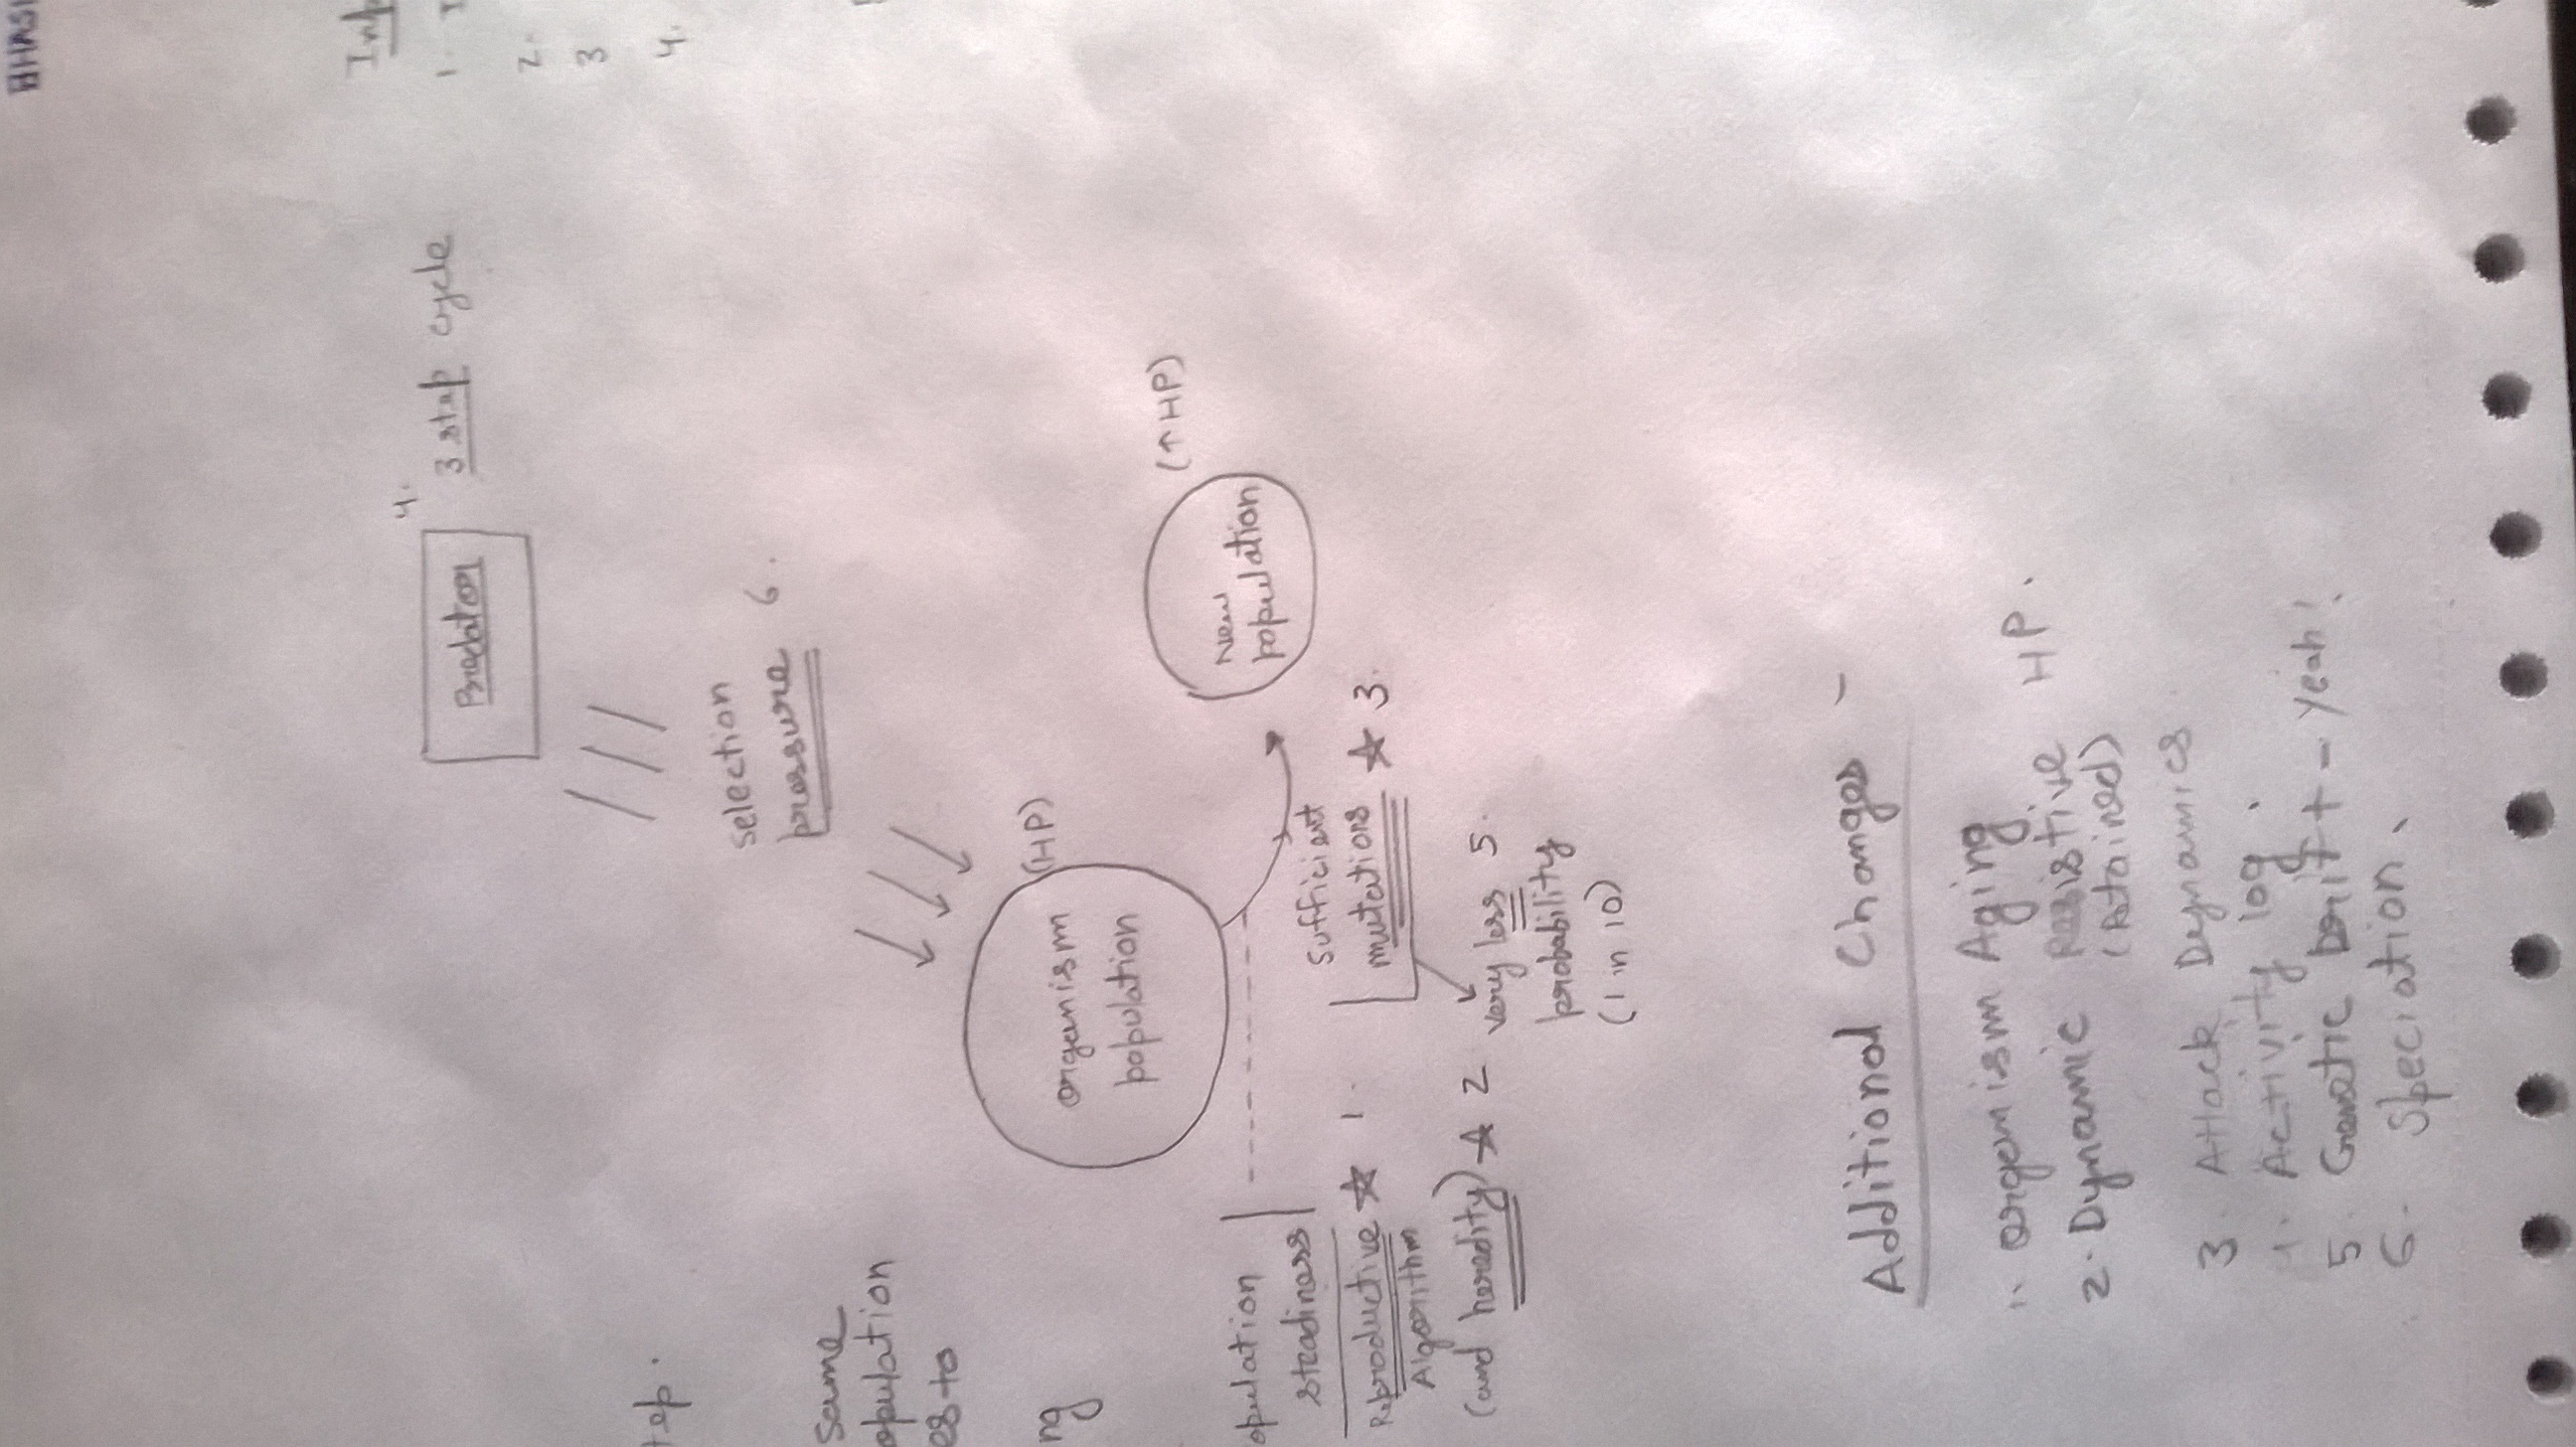 Inp
1.
2.
3
4.
4.
Predator
3 step cycle
tep.
selection
pressure 6.
same
opulation
es to
ng
organism
population
(HP)
New
population
(↑HP)
opulation
steadiness
Reproductive ☆ 1.
Algorithm
(and heredity) ☆ 2
sufficient
mutations ☆ 3.
very less 5.
probability
(1 in 10)
Additional Changes -
1. organism Aging
2. Dynamic HP.
(Attained)
3. Attack Dynamics
4. Activity log.
5. Genetic Drift - Yeah!
6. Speciation.